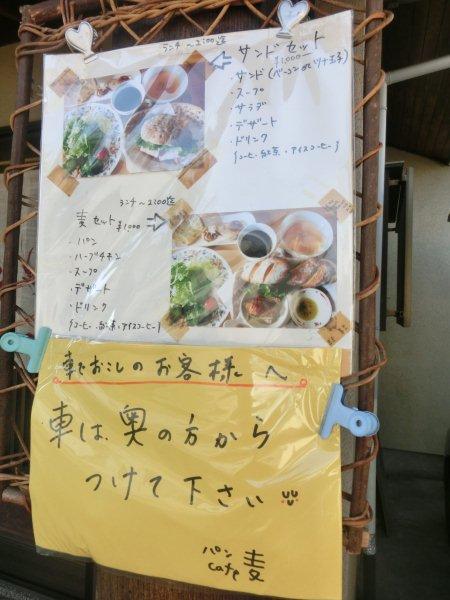 ランチ〜2:00迄
サンドセット
¥1,000
・サンド(ベーコン or ツナ玉子)
・スープ
・サラダ
・デザート
・ドリンク
(コーヒー・紅茶・アイスコーヒー)
ランチ〜2:00迄
麦セット ¥1,000
・パン
・ハーブチキン
・スープ
・デザート
・ドリンク
(コーヒー・紅茶・アイスコーヒー)
車でおこしのお客様へ
車は、奥の方から
つけて下さい
パン
cafe 麦